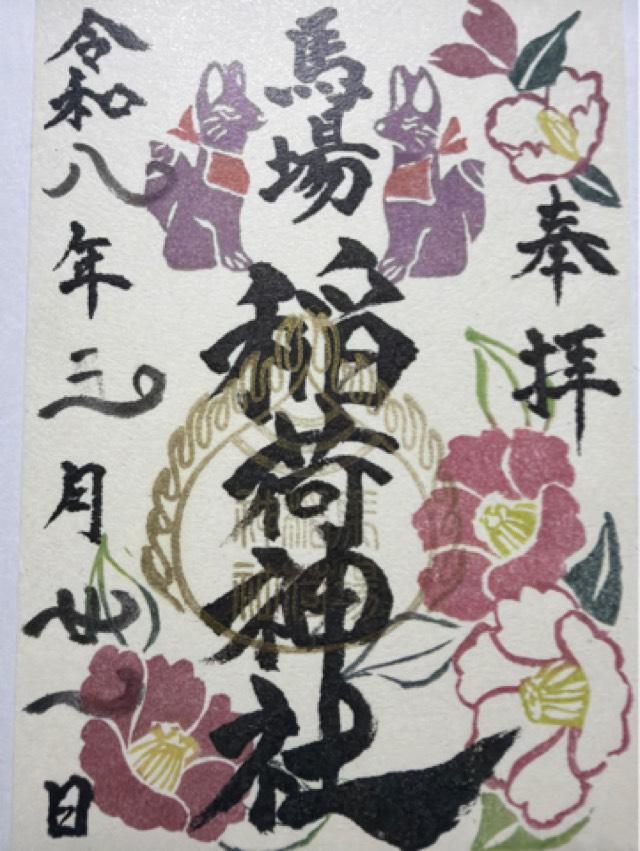 奉拝
馬場
稲荷神社
令和八年三月廿一日